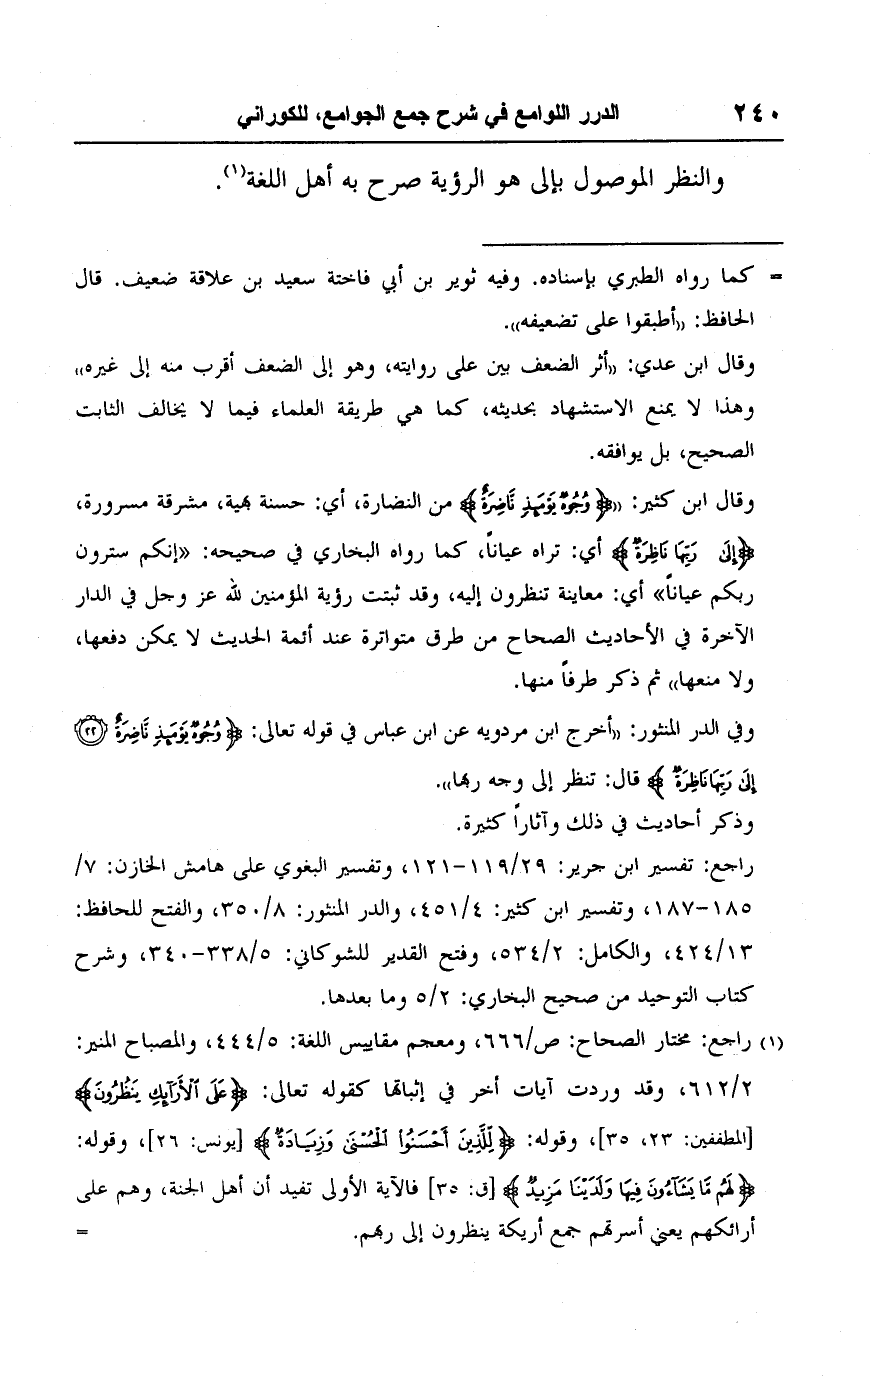 ٢٤٠ الدرر اللوامع في شرح جمع الجوامع، للكوراني
والنظر الموصول بإلى هو الرؤية صرح به أهل اللغة(١).
= كما رواه الطبري بإسناده. وفيه ثوير بن أبي فاختة سعيد بن علاقة ضعيف. قال
الحافظ: «أطبقوا على تضعيفه».
وقال ابن عدي: «أثر الضعف بين على روايته، وهو إلى الضعف أقرب منه إلى غيره»
وهذا لا يمنع الاستشهاد بحديثه، كما هي طريقة العلماء فيما لا يخالف الثابت
الصحيح، بل يوافقه.
وقال ابن كثير: «﴿وُجُوهٌ يَوْمَئِذٍ نَّاضِرَةٌ﴾ من النضارة، أي: حسنة بهية، مشرقة مسرورة،
﴿إِلَىٰ رَبِّهَا نَاظِرَةٌ﴾ أي: تراه عياناً، كما رواه البخاري في صحيحه: «إنكم سترون
ربكم عياناً» أي: معاينة تنظرون إليه، وقد ثبتت رؤية المؤمنين لله عز وجل في الدار
الآخرة في الأحاديث الصحاح من طرق متواترة عند أئمة الحديث لا يمكن دفعها،
ولا منعها» ثم ذكر طرفاً منها.
وفي الدر المنثور: «أخرج ابن مردويه عن ابن عباس في قوله تعالى: ﴿وُجُوهٌ يَوْمَئِذٍ نَّاضِرَةٌ ٢٢
إِلَىٰ رَبِّهَا نَاظِرَةٌ﴾ قال: تنظر إلى وجه ربها».
وذكر أحاديث في ذلك وآثاراً كثيرة.
راجع: تفسير ابن جرير: ١١٩/٢٩-١٢١، وتفسير البغوي على هامش الخازن: ٧/
١٨٥-١٨٧، وتفسير ابن كثير: ٤٥١/٤، والدر المنثور: ٣٥٠/٨، والفتح للحافظ:
٤٢٤/١٣، والكامل: ٥٣٤/٢، وفتح القدير للشوكاني: ٣٣٨/٥-٣٤٠، وشرح
كتاب التوحيد من صحيح البخاري: ٥/٢ وما بعدها.
(١) راجع: مختار الصحاح: ص/٦٦٦، ومعجم مقاييس اللغة: ٤٤٤/٥، والمصباح المنير:
٦١٢/٢، وقد وردت آيات أخر في إثباتها كقوله تعالى: ﴿عَلَى ٱلْأَرَآئِكِ يَنظُرُونَ﴾
[المطففين: ٢٣، ٣٥]، وقوله: ﴿لِّلَّذِينَ أَحْسَنُوا۟ ٱلْحُسْنَىٰ وَزِيَادَةٌ﴾ [يونس: ٢٦]، وقوله:
﴿لَهُم مَّا يَشَآءُونَ فِيهَا وَلَدَيْنَا مَزِيدٌ﴾ [ق: ٣٥] فالآية الأولى تفيد أن أهل الجنة، وهم على
أرائكهم يعني أسرتهم جمع أريكة ينظرون إلى ربهم. =